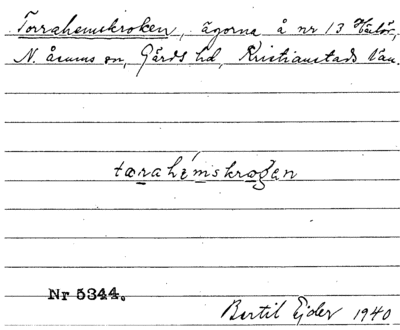 Torrahemskroken, ägorna å nr 13 Härlöv,
N. åsums sn, Gärds hd, Kristianstads län.
tœrahémskrogen
Nr 5344.
Bertil Ejder 1940